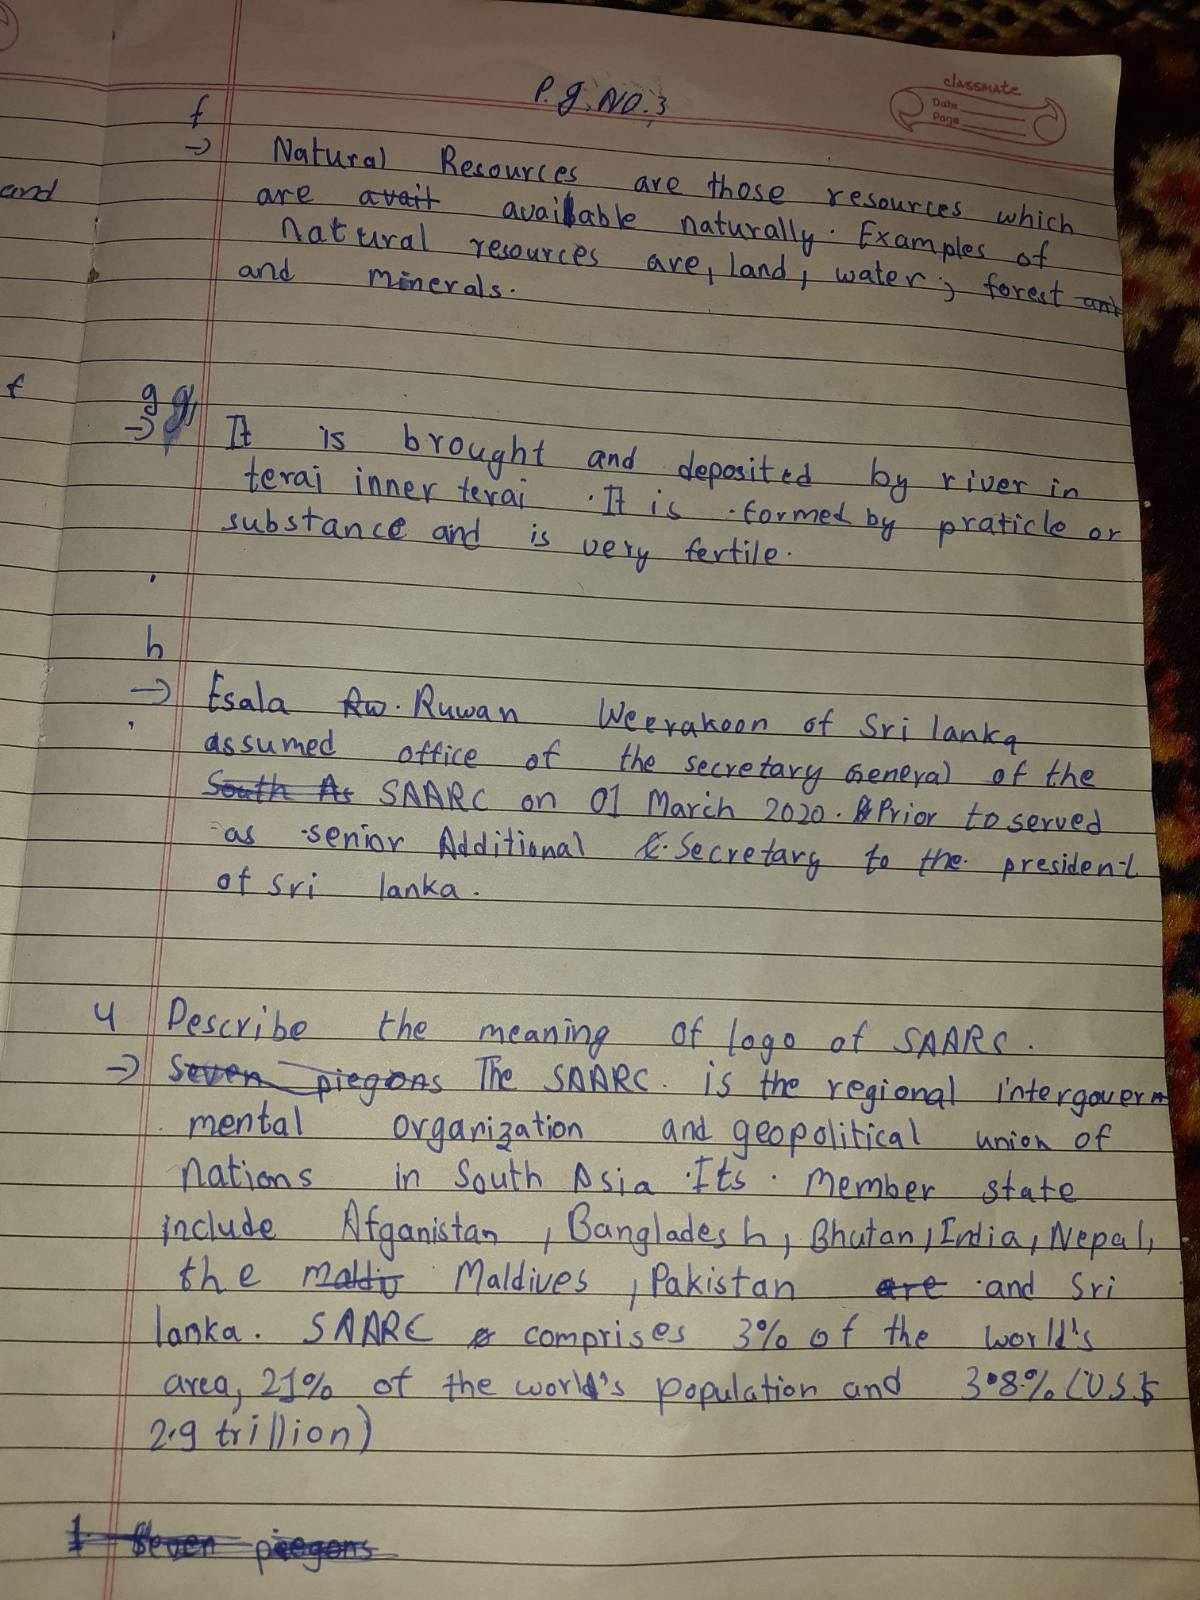 P.g. NO.3
classmate
Date
Page
and
f
f
→ Natural Resources are those resources which
are avait available naturally. Examples of
Natural resources are, land, water, forest and
and minerals.
g g
→ It is brought and deposited by river in
terai inner terai . It is formed by praticle or
substance and is very fertile.
h
→ Esala Rw. Ruwan Weerakoon of Sri lanka
assumed office of the secretary General of the
South As SAARC on 01 March 2020. Prior to served
as senior Additional Secretary to the president
of Sri lanka.
4 Describe the meaning of logo of SAARC.
→ Seven piegons The SAARC. is the regional intergovern
mental organization and geopolitical union of
nations in South Asia . Its . member state
include Afganistan , Bangladesh, Bhutan, India, Nepal,
the Maldiv Maldives , Pakistan are and Sri
lanka. SAARC comprises 3% of the world's
area, 21% of the world's population and 3.8% (US $
2.9 trillion)
1. Seven piegons